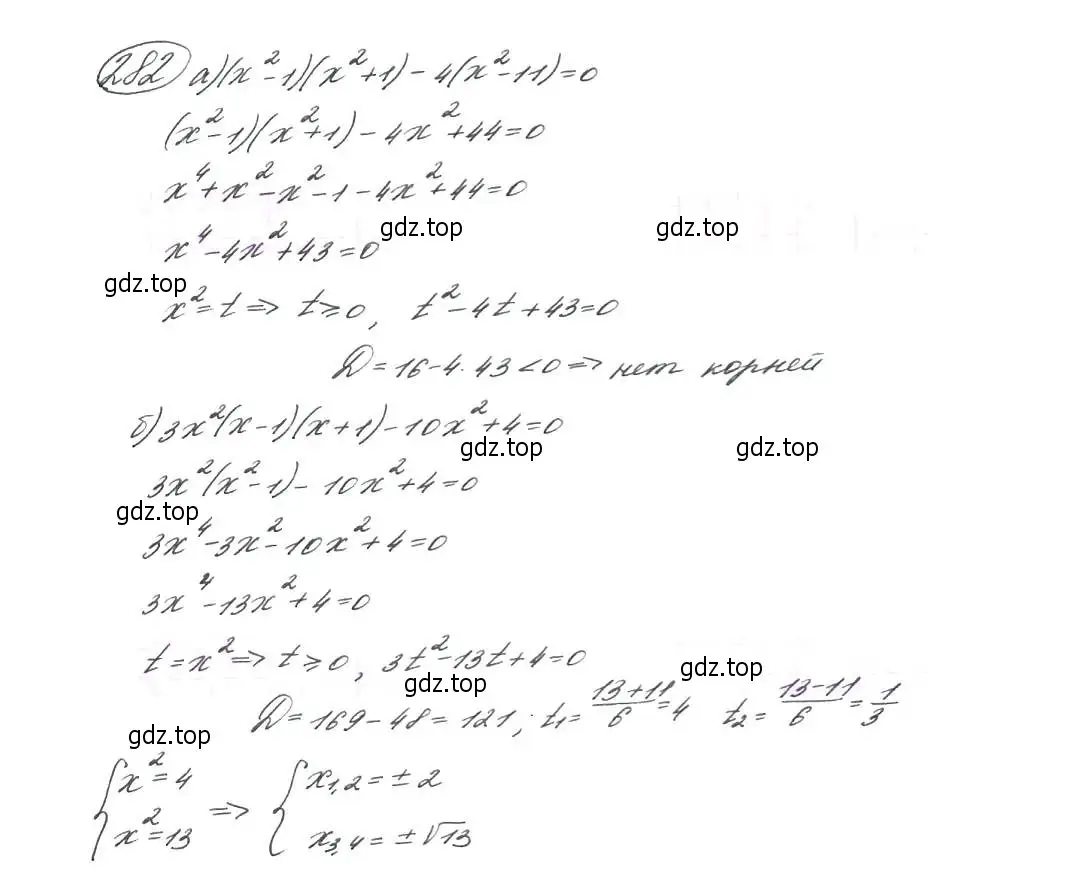 282 а) (x²-1)(x²+1) - 4(x²-11) = 0
(x²-1)(x²+1) - 4x² + 44 = 0
x⁴ + x² - x² - 1 - 4x² + 44 = 0
gdz.top gdz.top
x⁴ - 4x² + 43 = 0
gdz.top
x² = t => t ≥ 0, t² - 4t + 43 = 0
D = 16 - 4·43 < 0 => нет корней
б) 3x²(x-1)(x+1) - 10x² + 4 = 0
gdz.top gdz.top
3x²(x²-1) - 10x² + 4 = 0
gdz.top
3x⁴ - 3x² - 10x² + 4 = 0
3x⁴ - 13x² + 4 = 0
t = x² => t ≥ 0, 3t² - 13t + 4 = 0
gdz.top gdz.top
D = 169 - 48 = 121; t₁ = (13+11)/6 = 4 t₂ = (13-11)/6 = 1/3
gdz.top
{ x² = 4 => { x₁,₂ = ± 2
x² = 13 x₃,₄ = ± √13